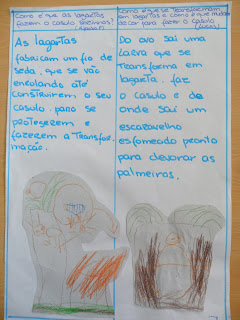 Como é que as lagartas
fazem o casulo
As lagartas
fabricam um fio de
seda, que se vão
enrolando até
construirem o seu
casulo. para se
protegerem e
fazerem a transfor-
mação.
Como é que se transformam
em lagartas e como é que
para fazer o casulo
(Lucas)
Do ovo sai uma
larva que se
transforma em
lagarta. faz
o casulo e de
onde sai um
escaravelho
esfomeado pronto
para devorar as
palmeiras.